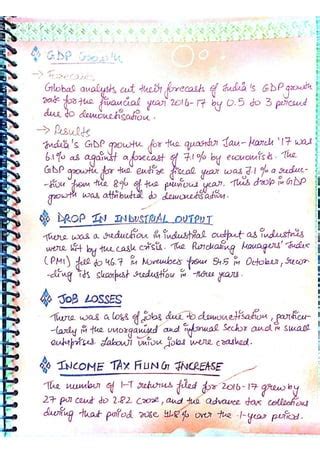 GDP Growth
→ Forecasts
Global analysts cut their forecasts of India's GDP growth
rate for the financial year 2016-17 by 0.5 to 3 percent
due to demonetisation.
→ Results
India's GDP growth for the quarter Jan-March '17 was
6.1% as against a forecast of 7.1% by economists. The
GDP growth for the entire fiscal year was 7.1% a reduc-
tion from the 8% of the previous year. This drop in GDP
growth was attributed to demonetisation.
DROP IN INDUSTRIAL OUTPUT
There was a reduction in industrial output as industries
were hit by the cash crisis. The Purchasing Managers' Index
(PMI) fell to 46.7 in November from 54.5 in October, recor-
ding its sharpest reduction in years.
JOB LOSSES
There was a loss of jobs due to demonetisation, particu-
-larly in the unorganised and informal sector and in small
enterprises labour union jobs were crashed.
INCOME TAX FILING INCREASE
The number of I-T returns filed for 2016-17 grew by
27 per cent to 2.82 crore, and the advance tax collections
during that period rose 41.8% over the 1-year period.